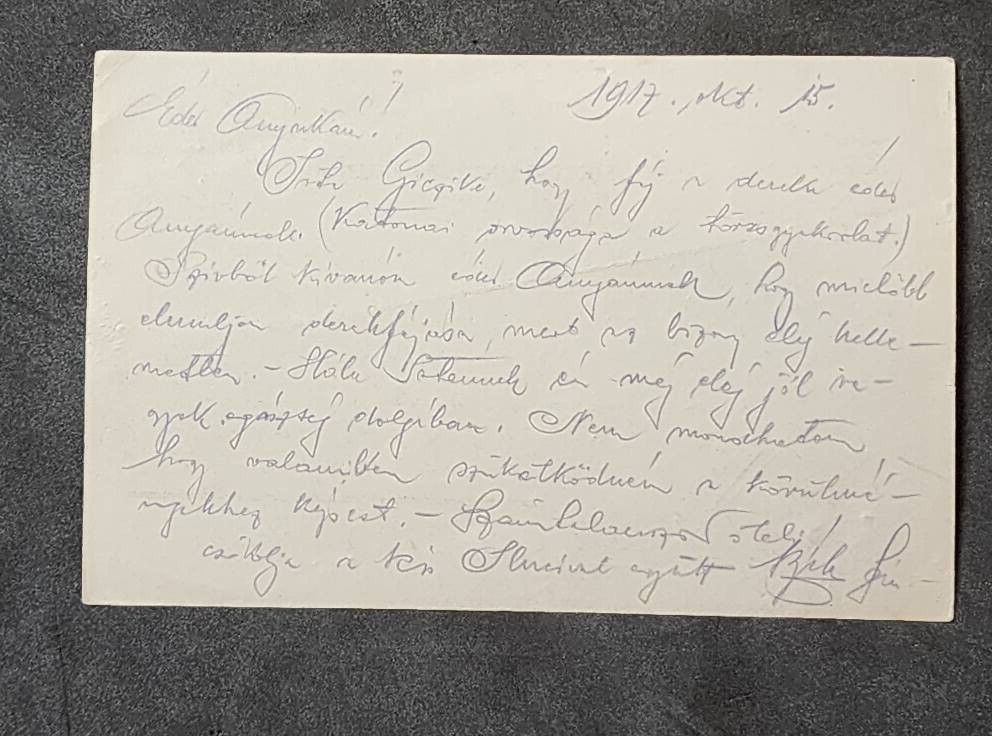 1917. okt. 15.
Édes Anyukám!
Írta Giczike, hogy fáj a dereka édes
Anyámnak. (Katonai orvossága a törzsgyakorlat.)
Szívből kívánom édes Anyámnak, hogy mielőbb
elmuljon derékfájása, mert az bizony elég kelle-
metlen. - Hála Istennek én még elég jól va-
gyok egészség dolgában. Nem mondhatom
hogy valamiben szűkölködném a körülmé-
nyekhez képest. -
csókolja a kis együtt